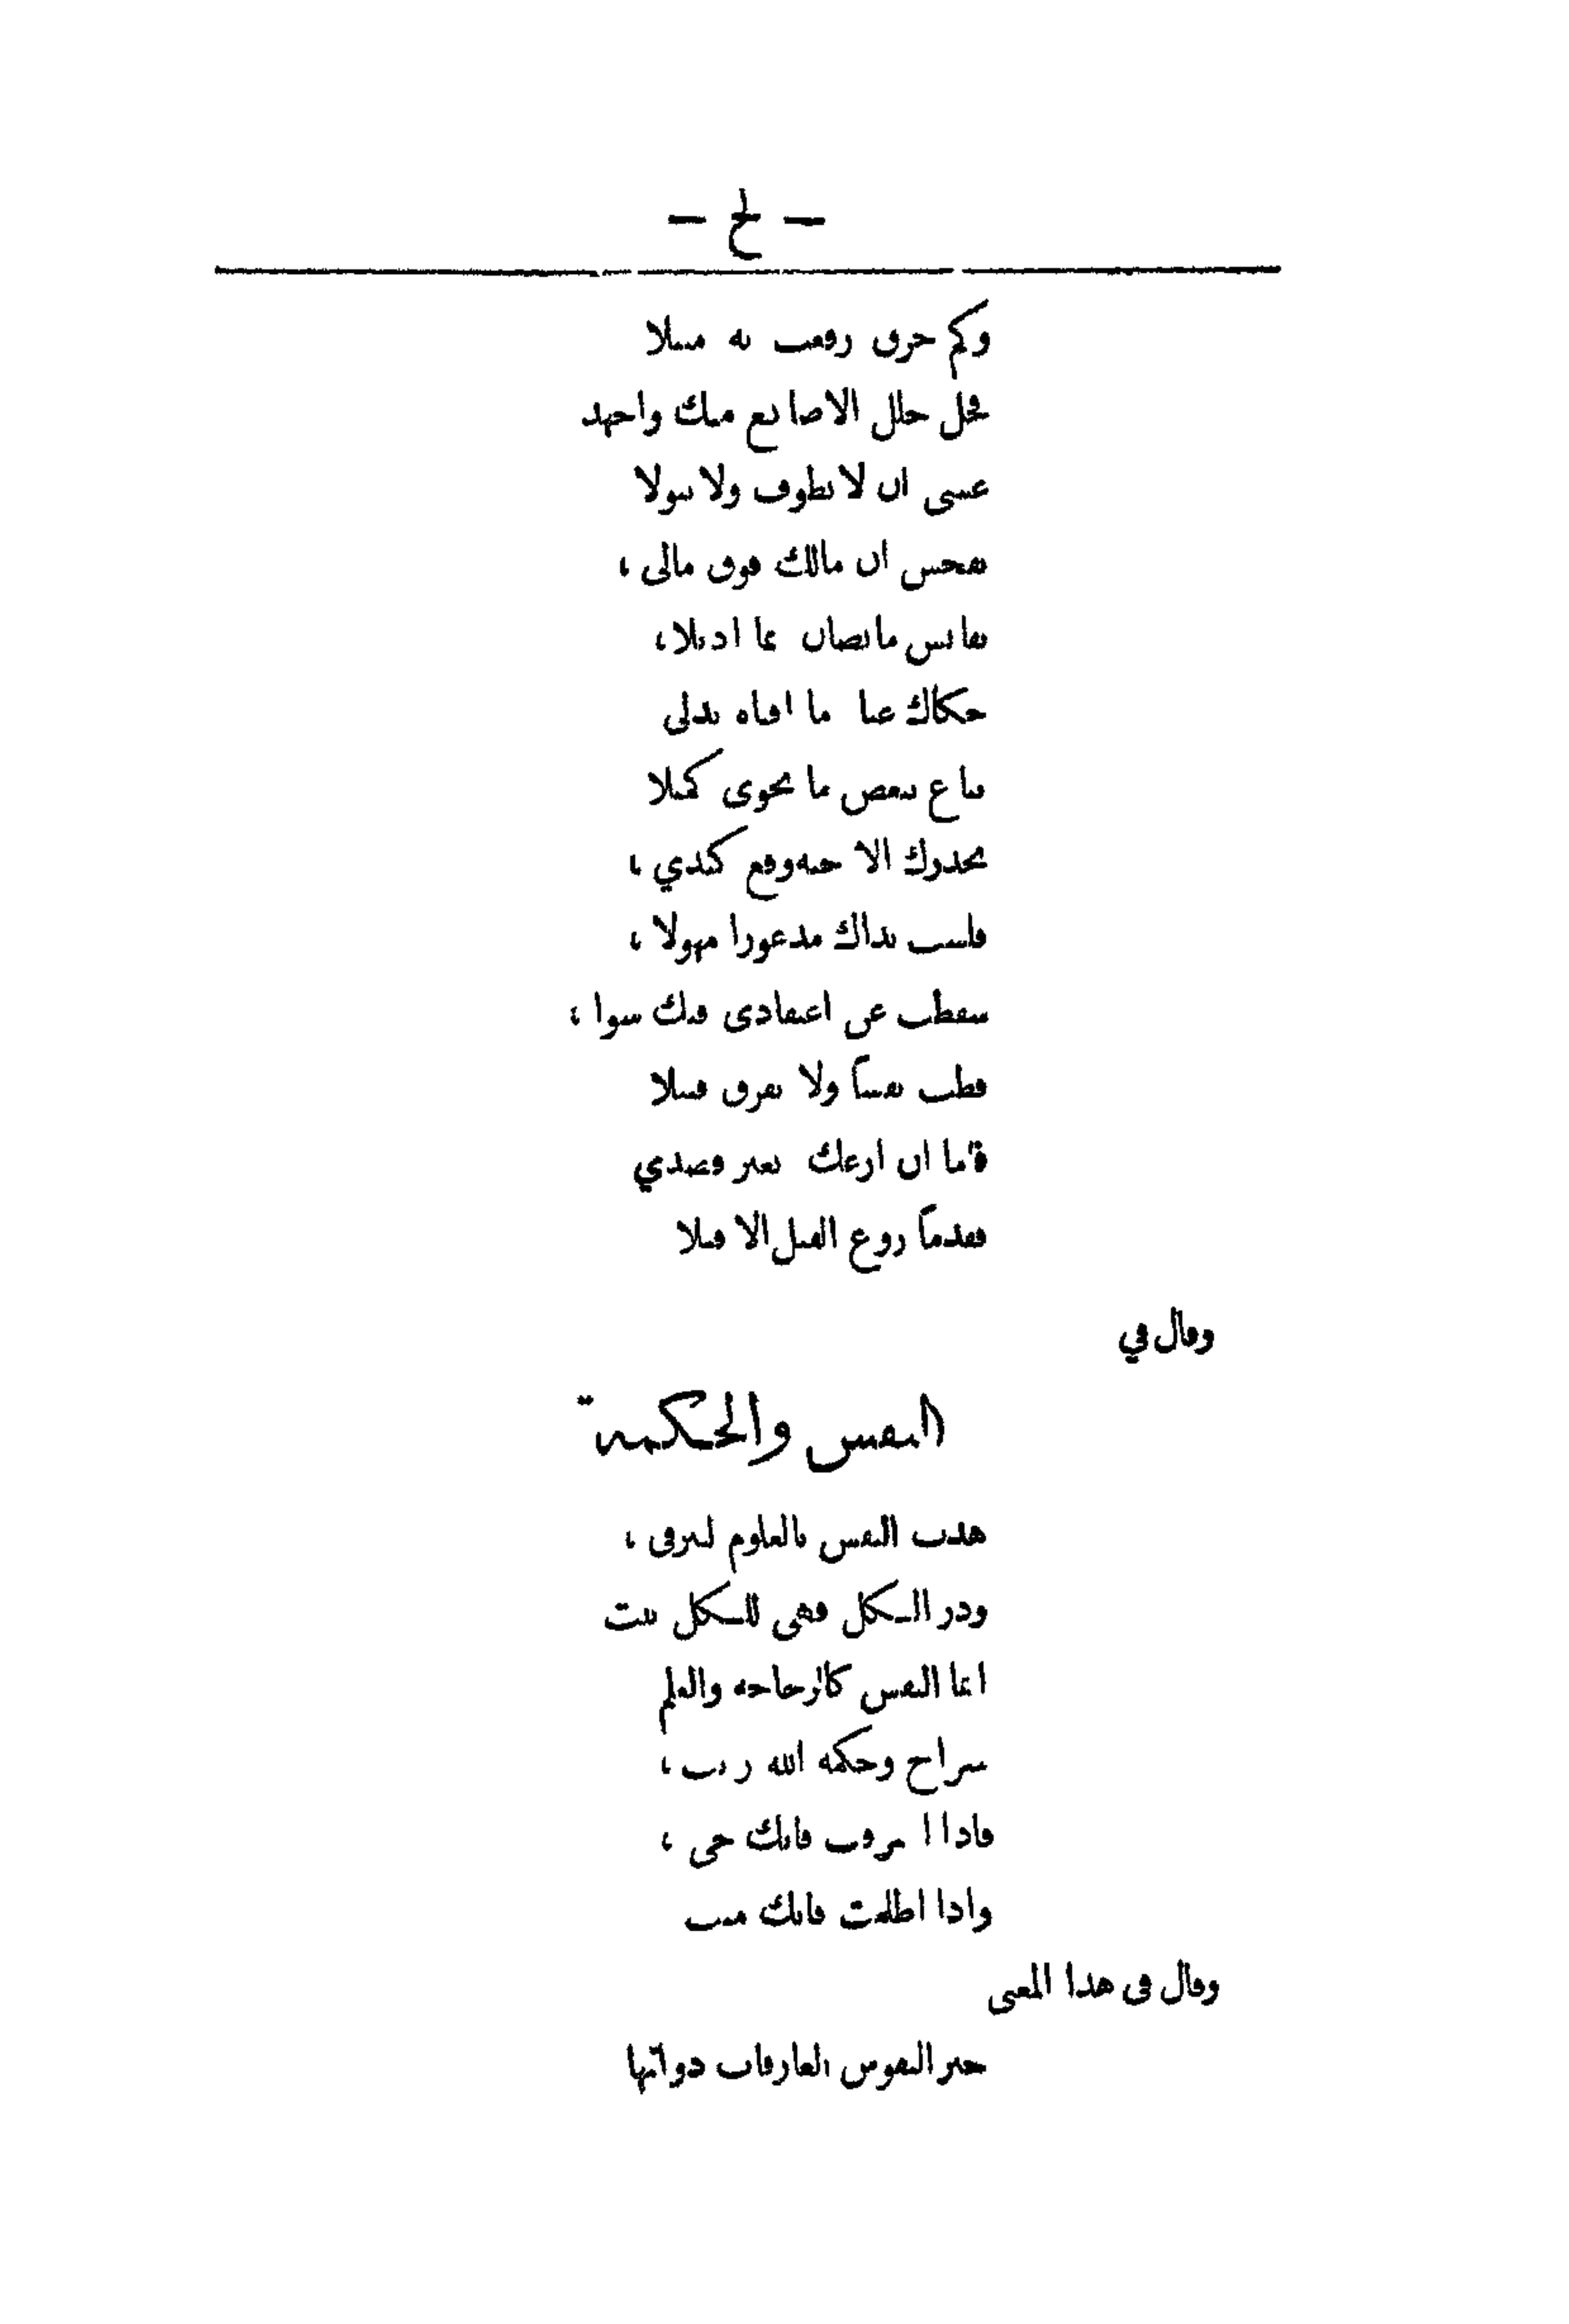 — لح —
وكم خرق رقعت به
فخل خلل الاصابع منك واجهد
عسى ان لا تطوف ولا
ان مالك فوق مالى ،
نفائس ما تصان بما اذيلا ،
ما
يباع ببعض ما يحوى كميلا
يحذرك الاحبه وقع كيدي ،
فلست بذاك مذعورا مهولا ،
سقطت عن اعتقادى فيك سوا ،
فطب نفساً ولا تفرق فتيلا
فاما ان ارعك بغير قصدي
فقدماً روع الفيل الافيلا
وقال في
النفس والحكمة
هذب النفس بالعلوم لترقى ،
وذر الكل فهى للكل بيت
انما النفس كالزجاجه والعلم
سراج وحكمه الله زيت ،
فاذا اشرقت فانك حى ،
واذا اظلمت فانك ميت
وقال فى هذا المعنى
خير النفوس العارفات ذواتها